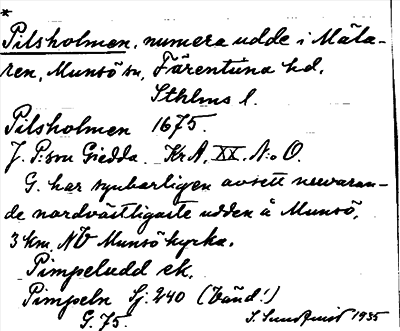 *
Pilsholmen, numera udde i Mäla-
ren, Munsö sn, Färentuna hd,
Sthlms l.
Pilsholmen 1675.
J. P:son Giedda. Kr.A, XX. N:o O.
G. har synbarligen avsett nuvaran-
de nordvästligaste udden å Munsö,
3 km. NV Munsö kyrka.
Pimpeludd ek.
Pimpeln Sj. 240 (Vänd!)
G. 75. S. Sundqvist 1935